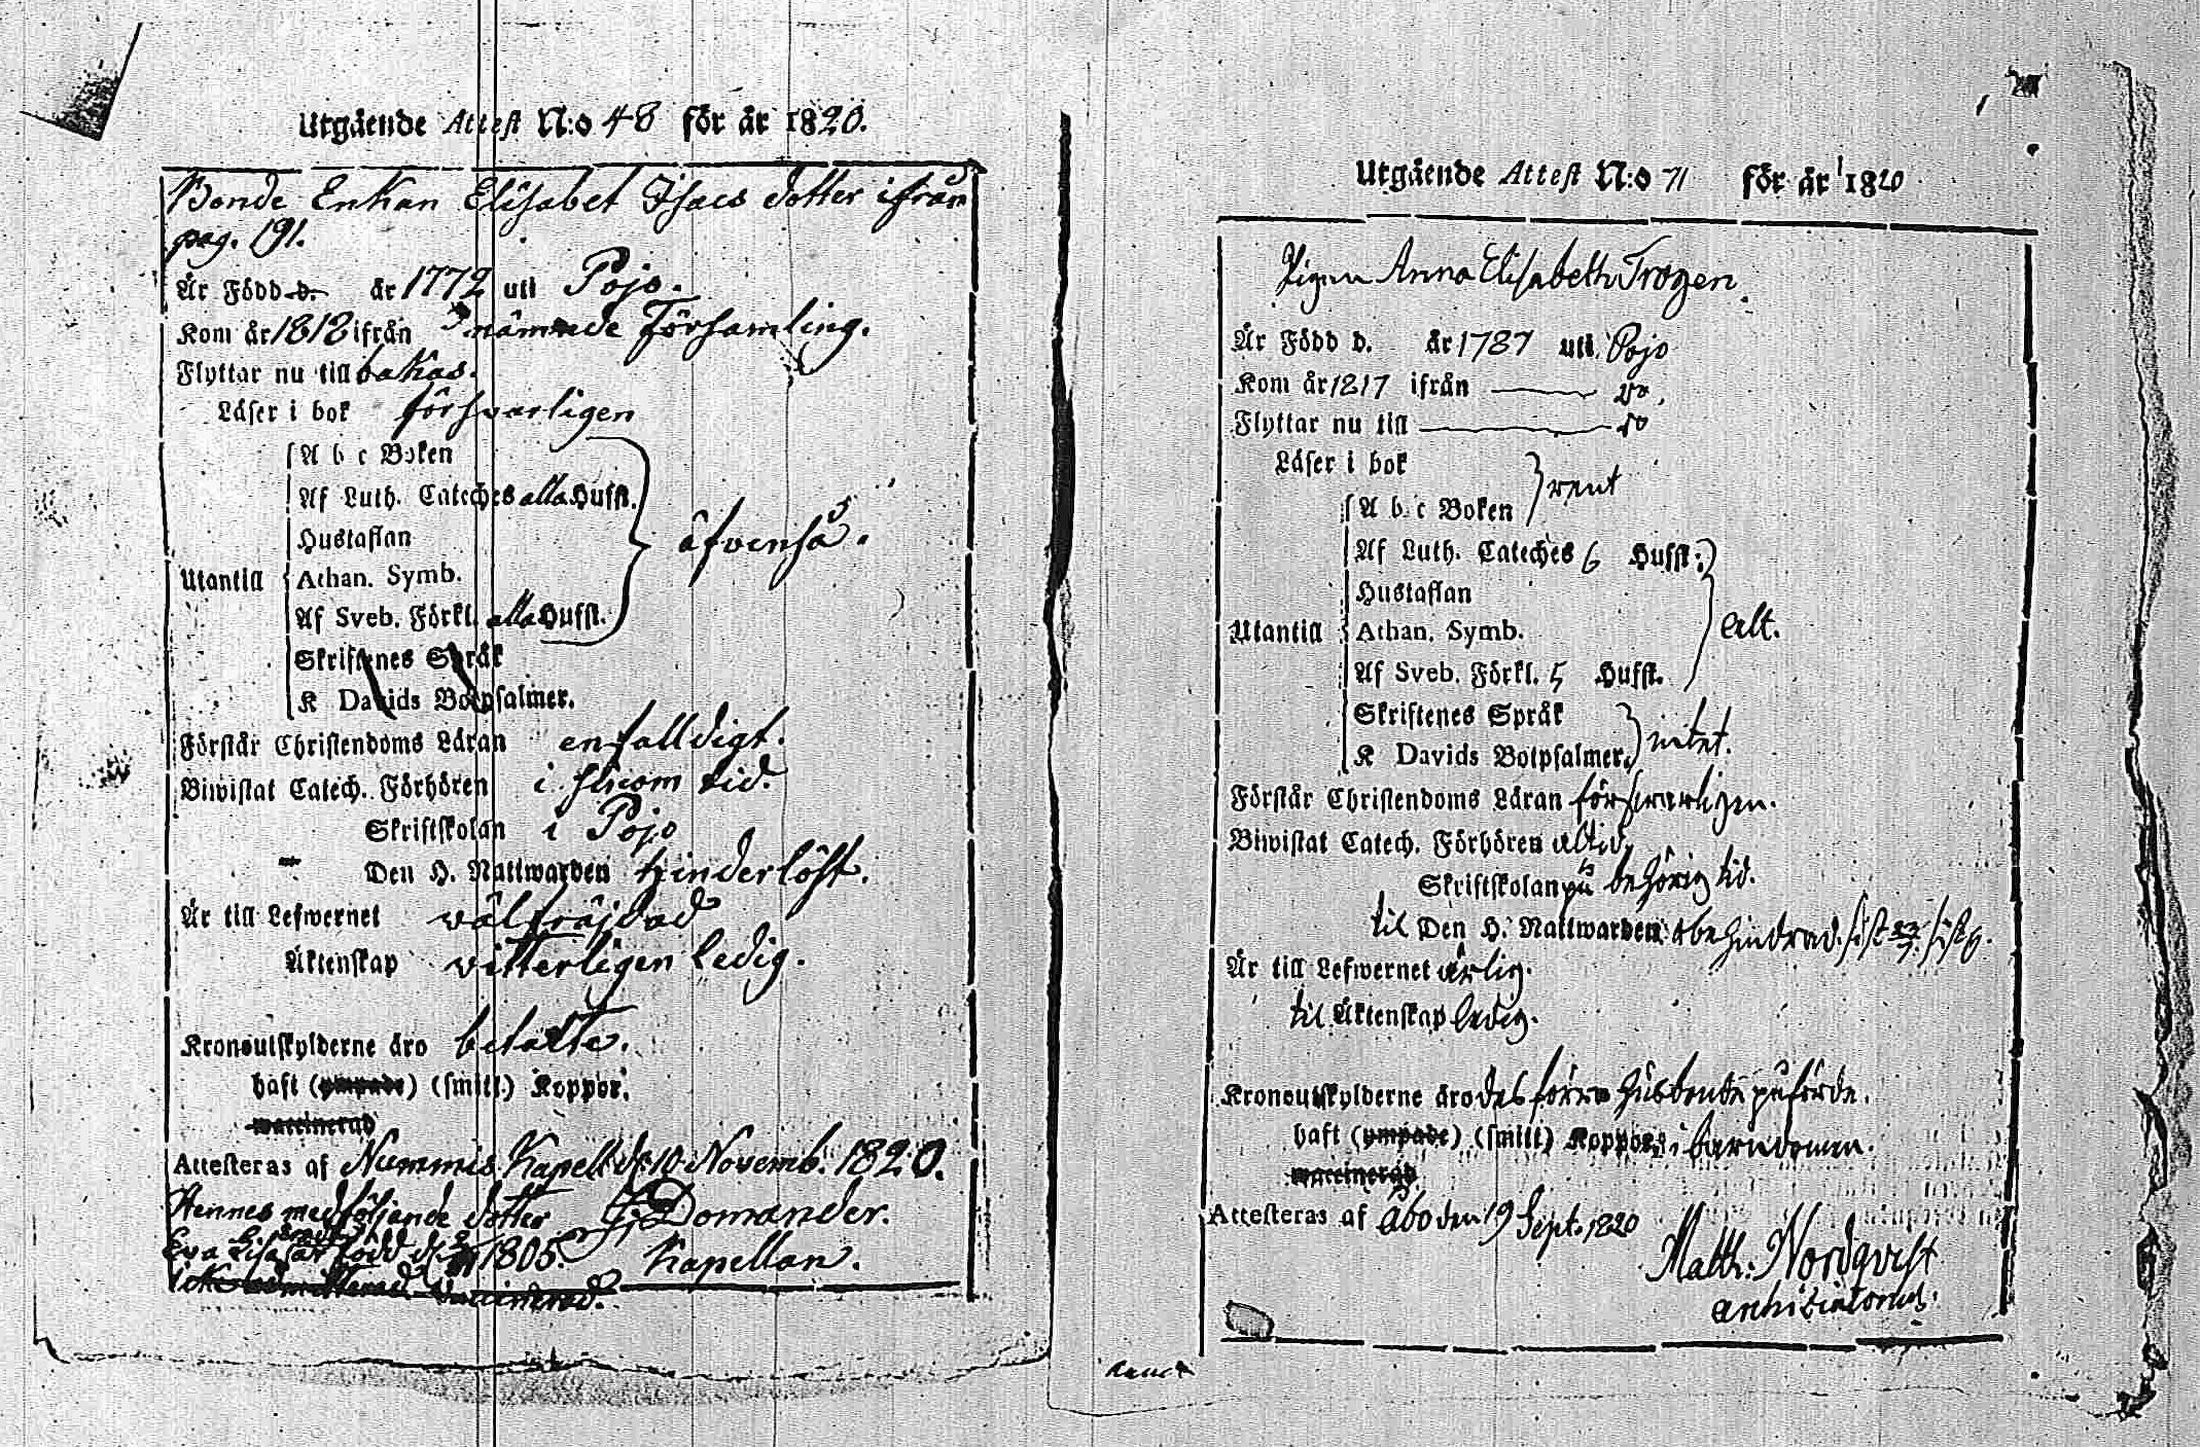 Utgående Attest N:o 48 för år 1820.
Bonde Enkan Elisabet Isacs dotter ifrån
pag. 191.
Är Född d. år 1772 uti Pojo.
Kom år 1818 ifrån nämnde Församling.
Flyttar nu till bakas.
Läser i bok försvarligen
A b c Boken
Af Luth. Cateches alla Hufst.
Hustaflan
äfvenså.
Utantill Athan. Symb.
Af Sveb. Förkl. alla Hufst.
Skriftenes Språk
K Davids Botpsalmer.
Förstår Christendoms Läran enfalldigt.
Biwistat Catech. Förhören i sinom tid.
Skriftskolan i Pojo
Den H. Nattwarden hinderlöst.
Är till Lefwernet välfräjdad
Äktenskap vitterligen ledig.
Kronoutskylderne äro betalte.
haft (ympade) (smitt.) Koppor.
waccinerad
Attesteras af Nummis Kapell d. 10 Novemb. 1820.
Hennes medföljande dotter Domander.
Eva Lisa är född d. 1805. Kapellan.
Utgående Attest N:o 71 för år 1820
Pigan Anna Elisabeth Trogen
Är Född d. år 1787 uti Pojo
Kom år 1817 ifrån — do.
Flyttar nu till — do
Läser i bok
rent
A b c Boken
Af Luth. Cateches 6 Hufst:
Hustaflan
Utantill Athan. Symb. alt.
Af Sveb. Förkl. 5 Hufst.
Skriftenes Språk
intet.
K Davids Botpsalmer.
Förstår Christendoms Läran försvarligen.
Biwistat Catech. Förhören altid.
Skriftskolan på behörig tid.
til Den H. Nattwarden obehindrad.
Är till Lefwernet ärlig.
til Äktenskap ledig.
Kronoutskylderne äro des förra husbonde påförde.
haft (ympade) (smitt) Koppor i barndomen.
waccinerad
Attesteras af Åbo den 19 Sept. 1820
Matth: Nordqvist